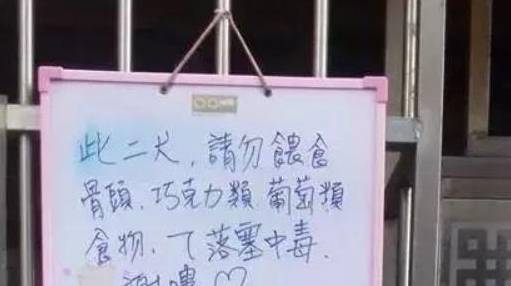 此二犬，請勿餵食
骨頭、巧克力類、葡萄類
食物，ㄟ落塞中毒.
謝嘍♡